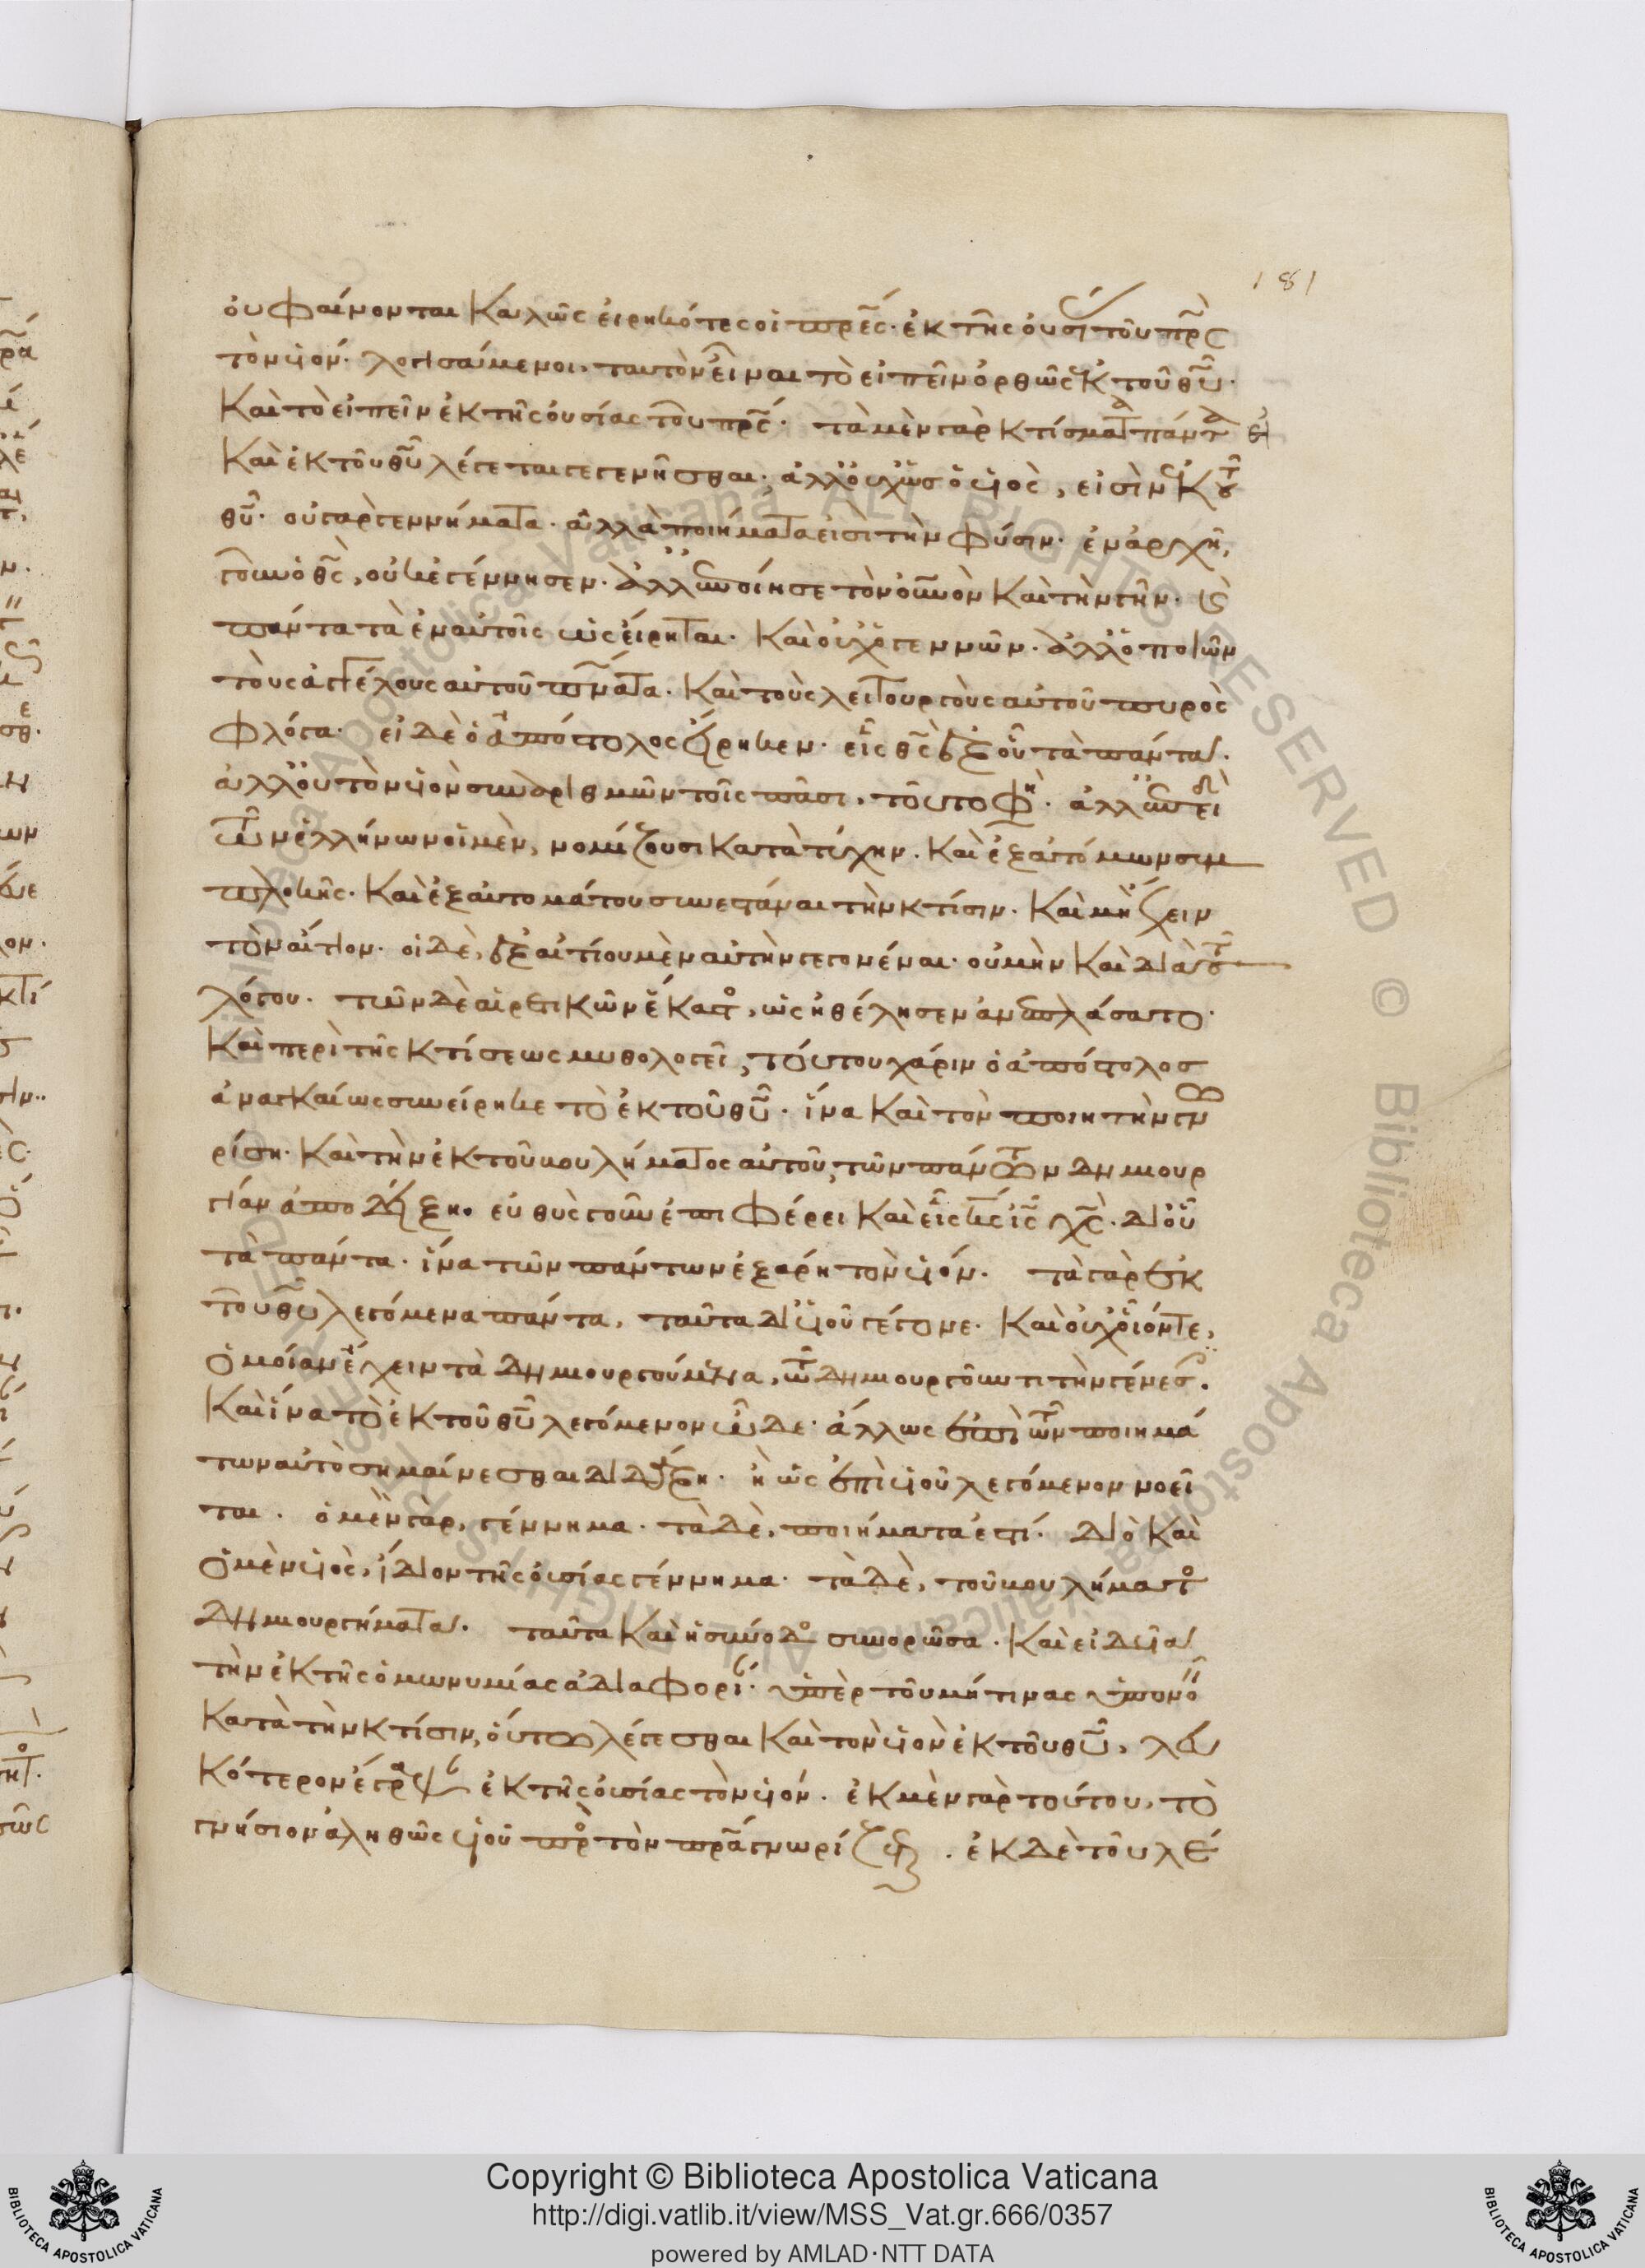 181
οὐ φαίνονται καλῶς εἰρηκότες οἱ πρ̅ε̅ς· ἐκ τῆς οὐσί τοῦ πρ̅ς
τὸν υἱόν· λογισάμενοι, ταυτὸν εἶναι τὸ εἰπεῖν ὀρθῶς ἐκ τοῦ θυ̅·
καὶ τὸ εἰπεῖν ἐκ τῆς οὐσίας τοῦ πρ̅ς· τὰ μὲν γὰρ κτίσματα πάντα εἰ
καὶ ἐκ τοῦ θυ̅ λέγεται γεγενῆσθαι, ἀλλ' οὐχ ὡς ὁ υἱὸς, εἰσὶν ἐκ τοῦ
θυ̅· οὐ γὰρ γεννήματα· ἀλλὰ ποιήματα εἰσὶ τὴν φύσιν· ἐν ἀρχῆ,
γοῦν ὁ θς̅, οὐκ ἐγέννησεν· ἀλλ' ἐποίησε τὸν οὐ̅νον καὶ τὴν γῆν· καὶ
πάντα τὰ ἐν αὐτοῖς ὡς εἴρηται· καὶ οὐχ ὁ γεννῶν· ἀλλ' ὁ ποιῶν
τοὺς ἀγγέλους αὐτοῦ πν̅ματα· καὶ τοὺς λειτουργοὺς αὐτοῦ πυρὸς
φλόγα· εἰ δὲ ὁ ἀπόστολος εἴρηκεν· εἷς θς̅ ἐξ οὗ τὰ πάντα·
ἀλλ' οὐ τὸν υἱὸν συναριθμῶν τοῖς πᾶσι, τοῦτο φη· ἀλλ' ἐπειδὴ
τῶν ἑλλήνων οἱ μὲν, νομίζουσι κατὰ τύχην· καὶ ἐξ ἀτόμων συμ
πλοκῆς· καὶ ἐξ αὐτομάτου συνεστάναι τὴν κτίσιν· καὶ μὴ ἔχειν
τὸν αἴτιον· οἱ δὲ, ἐξ αἰτίου μὲν αὐτὴν γεγονέναι· οὐ μὴν καὶ διὰ τοῦ
λόγου· τῶν δὲ αἱρετικῶν ἕκαστος, ὡς ἠθέλησεν ἀνεπλάσατο·
καὶ περὶ τῆς κτίσεως μυθολογεῖ, τούτου χάριν ὁ ἀπόστολος
ἀναγκαίως συνείρηκε τὸ ἐκ τοῦ θυ̅· ἵνα καὶ τὸν ποιητὴν γνω
ρίση· καὶ τὴν ἐκ τοῦ βουλήματος αὐτοῦ, τῶν πάντων δημιουρ
γίαν ἀποδείξη· εὐθὺς γοῦν ἐπιφέρει καὶ εἷς κς̅ ις̅ χς̅· δι' οὗ
τὰ πάντα· ἵνα τῶν πάντων ἐξαρῆ τὸν υἱόν· τὰ γὰρ ἐκ
τοῦ θυ̅ λεγόμενα πάντα, ταῦτα δι' υἱοῦ γέγονε· καὶ οὐχ οἷόν τε,
ὁμοίαν ἔχειν τὰ δημιουργούμενα, τῶ δημιουργοῦντι τὴν γένεσ·
καὶ ἵνα τὸ ἐκ τοῦ θυ̅ λεγόμενον ὧδε· ἄλλως ἐπὶ τῶν ποιημά
των αὐτὸ σημαίνεσθαι διδάξη· ἢ ὡς ἐπὶ υἱοῦ λεγόμενον νοεῖ
ται· ὁ μὲν γὰρ, γέννημα· τὰ δὲ, ποιήματα ἐστί· διὸ καὶ
ὁ μὲν υἱὸς, ἴδιον τῆς οὐσίας γέννημα· τὰ δὲ, τοῦ βουλήματος
δημιουργήματα· ταῦτα καὶ ἡ σύνοδος συνορῶσα· καὶ εἰδυῖα
τὴν ἐκ τῆς ὁμωνυμίας ἀδιαφορί· ὑπὲρ τοῦ μή τινας ὑπονο
κατὰ τὴν κτίσιν, οὕτω λέγεσθαι καὶ τὸν υἱὸν ἐκ τοῦ θυ̅, λευ
κότερον ἔγραψεν ἐκ τῆς οὐσίας τὸν υἱόν· ἐκ μὲν γὰρ τούτου, τὸ
γνήσιον ἀληθῶς υἱοῦ πρὸς τὸν πρ̅α γνωρίζεται· ἐκ δὲ τοῦ λέ
Copyright © Biblioteca Apostolica Vaticana
http://digi.vatlib.it/view/MSS_Vat.gr.666/0357
powered by AMLAD·NTT DATA